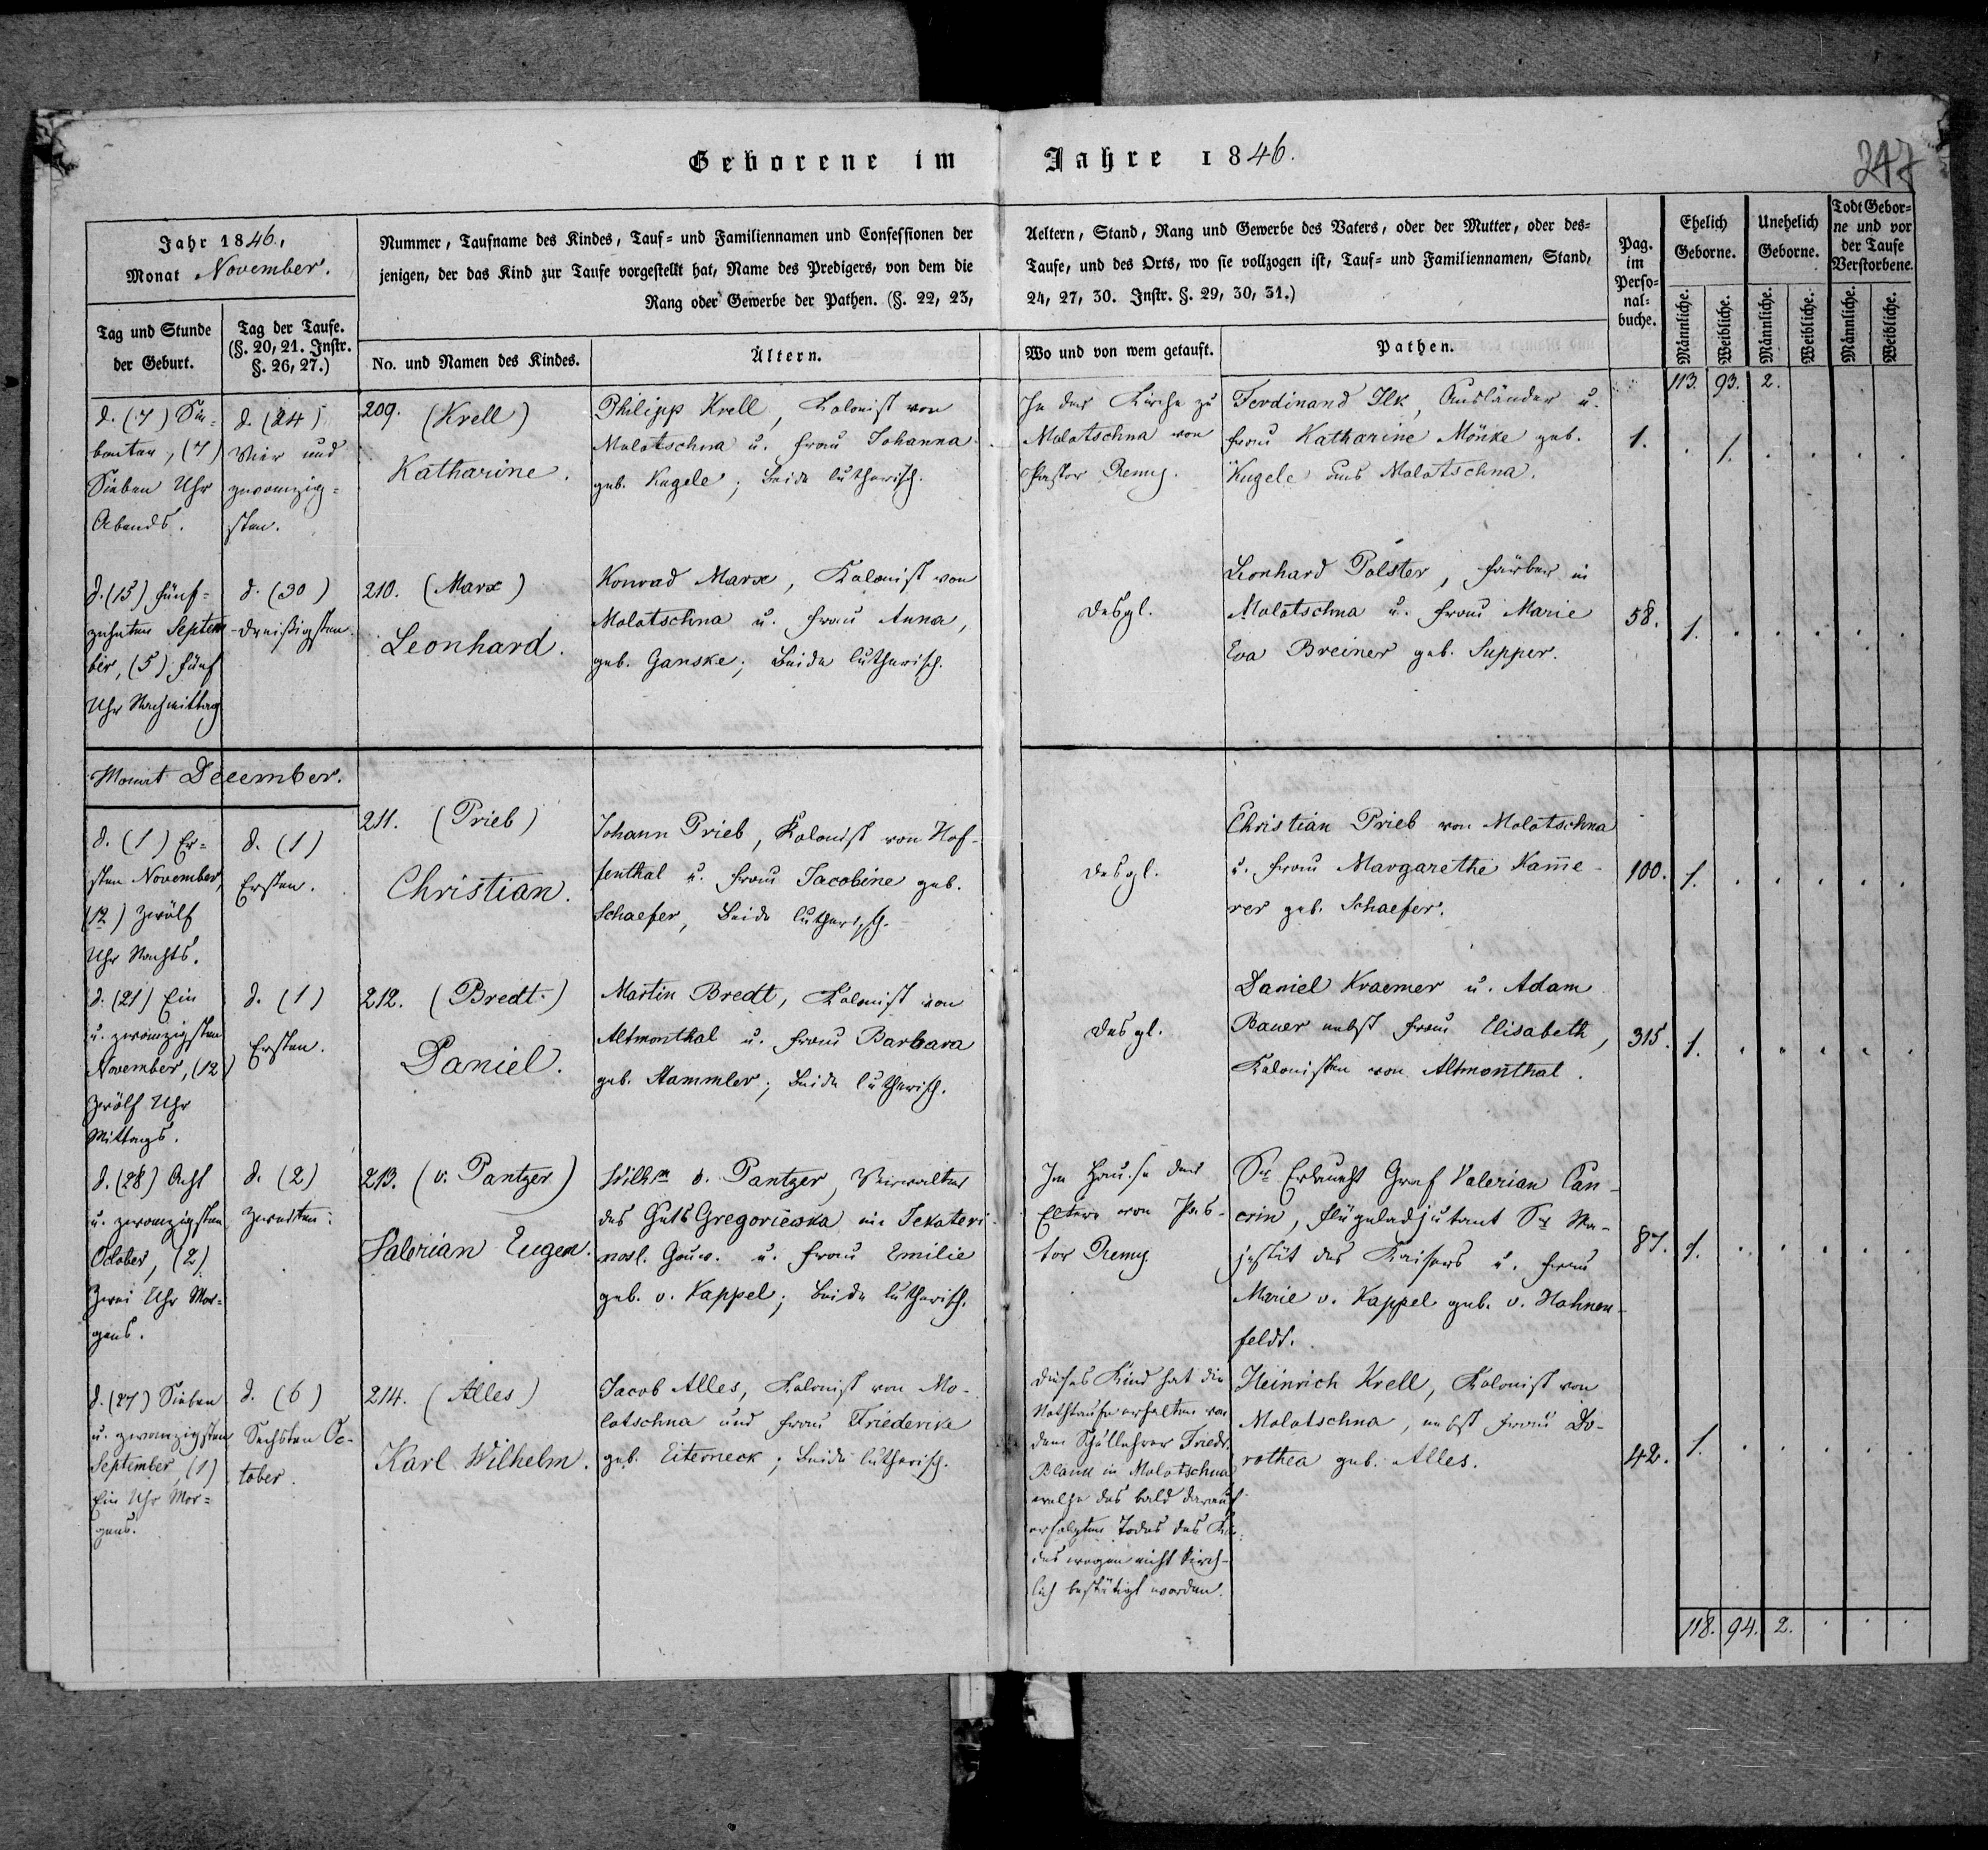 Geborene im Jahre 1846.
247
Jahr 1846,
Monat November.
Nummer, Taufname des Kindes, Tauf= und Familiennamen und Confessionen der
jenigen, der das Kind zur Taufe vorgestellt hat, Name des Predigers, von dem die
Rang oder Gewerbe der Pathen. (§. 22, 23,
Aeltern, Stand, Rang und Gewerbe des Vaters, oder der Mutter, oder des=
Taufe, und des Orts, wo sie vollzogen ist, Tauf= und Familiennamen, Stand,
24, 27, 30. Instr. §. 29, 30, 31.)
Pag.
im
Perso=
nal=
buche.
Ehelich
Geborne.
Unehelich
Geborne.
Todt Gebor=
ne und vor
der Taufe
Verstorbene.
Tag und Stunde
der Geburt.
Tag der Taufe.
(§. 20, 21. Instr.
§. 26, 27.)
No. und Namen des Kindes.
Ältern.
Wo und von wem getauft.
Pathen.
Männliche.
Weibliche.
Männliche.
Weibliche.
Männliche.
Weibliche.
113. 93. 2.
d. (7) Sie=
benten, (7)
Sieben Uhr
Abends.
d. (24)
Vier und
zwanzig=
sten.
209. (Krell)
Katharine.
Philipp Krell, Kolonist von
Molotschna u. Frau Johanna
geb. Kugele; beide lutherisch.
In der Kirche zu
Molotschna von
Pastor Remy.
Ferdinand Ilk, Ausländer u.
Frau Katharine Mönke geb.
Kugele aus Molotschna.
1. . 1. . . . .
d. (15) fünf=
zehnten Septem
ber, (5) fünf
Uhr Nachmittag
d. (30)
dreißigsten.
210. (Marx)
Leonhard.
Konrad Marx, Kolonist von
Molotschna u. Frau Anna,
geb. Ganske; beide lutherisch.
desgl.
Leonhard Polster, Färber in
Molotschna u. Frau Marie
Eva Breiner geb. Supper.
58. 1. . . . . .
Monat December.
d. (1) Er=
sten November,
(12) zwölf
Uhr Nachts.
d. (1)
Ersten.
211. (Prieb)
Christian.
Johann Prieb, Kolonist von Hof-
fenthal u. Frau Jacobine geb.
Schaefer, beide lutherisch.
desgl.
Christian Prieb von Molotschna
u. Frau Margarethe Kam̅e-
rer geb. Schaefer.
100. 1. . . . . .
d. (21) Ein
u. zwanzigsten
November, (12)
zwölf Uhr
Mittags.
d. (1)
Ersten.
212. (Bredt.)
Daniel.
Martin Bredt, Kolonist von
Altmonthal u. Frau Barbara
geb. Hammler; beide lutherisch.
desgl.
Daniel Kraemer u. Adam
Bauer nebst Frau Elisabeth,
Kolonisten von Altmonthal.
315. 1. . . . . .
d. (28) Acht
u. zwanzigsten
October, (2)
Zwei Uhr Mor=
gens.
d. (2)
Zweiten.
213. (v. Pantzer)
Valerian Eugen.
Wilhm v. Pantzer, Verwalter
des Guts Gregoriewska im Jekateri-
nosl. Gouv. u. Frau Emilie
geb. v. Kappel; beide lutherisch.
Im Hause der
Eltern von Pas-
tor Remy.
Sr Erlaucht Graf Valerian Can-
crin, Flügeladjutant Sr Ma-
jestät des Kaisers u. Frau
Marie v. Kappel geb. v. Hahnen-
feldt.
87. 1. . . . . .
d. (27) Sieben
u. zwanzigsten
September, (1)
Ein Uhr Mor=
gens.
d. (6)
Sechsten Oc-
tober.
214. (Alles)
Karl Wilhelm.
Jacob Alles, Kolonist von Mo-
lotschna und Frau Friederike
geb. Eiterneck; beide lutherisch.
Dieses Kind hat die
Nothtaufe erhalten von
dem Schullehrer Friedr.
Blank in Molotschna
welche des bald darauf
erfolgten Todes des Kin-
des wegen nicht kirch-
lich bestätigt worden.
Heinrich Krell, Kolonist von
Molotschna, nebst Frau Do-
rothea geb. Alles.
42. 1. . . . . .
118. 94. 2. . . .